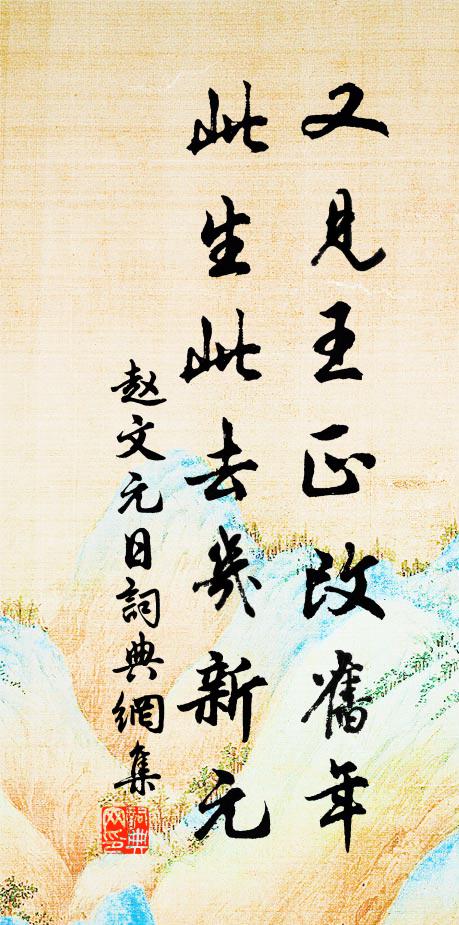 又見王正改舊年
此生此去幾新元
赵文元日詞典網集
詞典網印